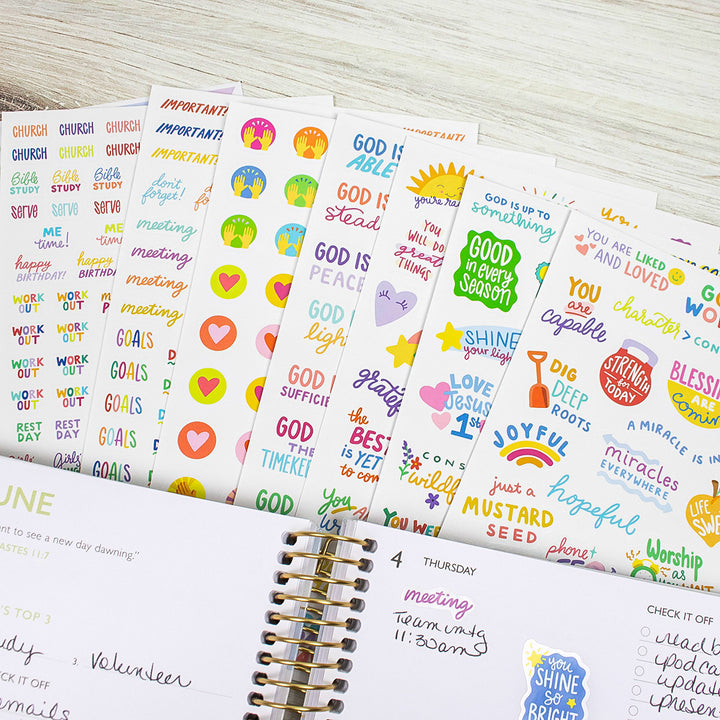 CHURCH CHURCH CHURCH
CHURCH CHURCH CHURCH
Bible STUDY Bible STUDY Bible STUDY
Serve Serve Serve
ME time! ME time!
happy BIRTHDAY! happy BIRTHDAY!
WORK OUT WORK OUT
WORK OUT WORK OUT
WORK OUT WORK OUT
WORK OUT WORK OUT
REST DAY REST DAY
IMPORTANT!
IMPORTANT!
IMPORTANT!
don't forget!
meeting
meeting
meeting
meeting
GOALS
GOALS
GOALS
GOALS
GOALS
IMPORTANT!
GOD IS ABLE
GOD IS
GOD IS
PEACE
GOD
light
GOD
SUFFICIE
GOD
THE
TIMEKE
GOD
you're
YOU
WILL DO
great
THINGS
grateful
the
BEST
is YET
to co
YOU
GOD IS UP TO
something
GOOD
in every
SEASON
SHINE
your light
LOVE
Jesus
1st
CONS
wildf
YOU WE
YOU ARE LIKED
AND LOVED
GOD
WOR
YOU
are
capable
character >
CO
DIG
DEEP
ROOTS
STRENGTH
for
TODAY
BLESSING
ARE
coming
A MIRACLE IS IN
JOYFUL
miracles
EVERYWHERE
just a
MUSTARD
SEED
hopeful
LIFE IS
SWE
phone
Worship
as
you WAIT
UNE
nt to see a new day dawning."
ASTES 11:7
'S TOP 3
udy 3. Volunteer
CK IT OFF
emails
4 THURSDAY
meeting
Team mtg
11:30am
you
SHINE
SO
BRIGHT
CHECK IT OFF
read b
podca
updat
presen